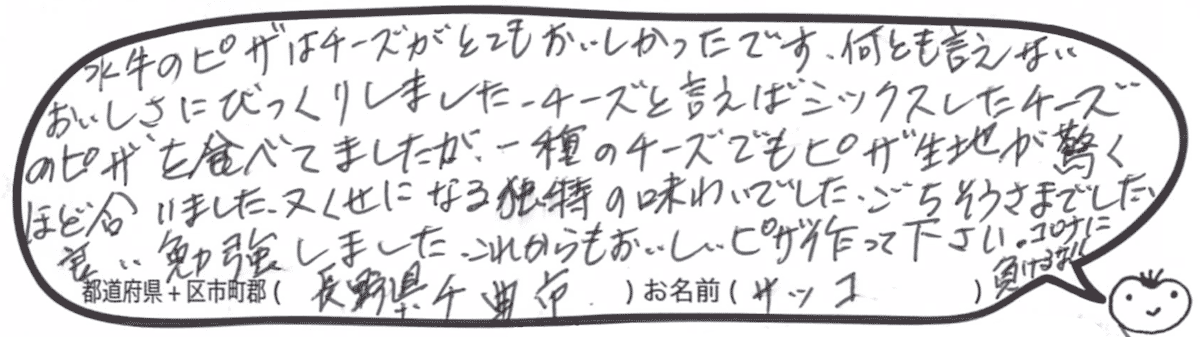 水牛のピザはチーズがとてもおいしかったです、何とも言えない
おいしさにびっくりしました。チーズと言えばミックスしたチーズ
のピザを食べてましたが、一種のチーズでもピザ生地が驚く
ほど合いました、又くせになる独特の味わいでした、ごちそうさまでした、
良い勉強しました。これからもおいしいピザ作って下さい。コロナに
負けるな!!
都道府県+区市町郡(長野県千曲市)お名前(サッコ)